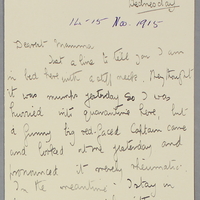 Wednesday
14-15 Nov. 1915
Dearest Mamma,
Just a line to tell you I am
in bed here with a stiff neck. They thought
it was mumps yesterday so I was
hurried into quarantine here, but
a funny big red-faced Captain came
and looked at me yesterday and
pronounced it merely rheumatic.
In the meantime I stay in